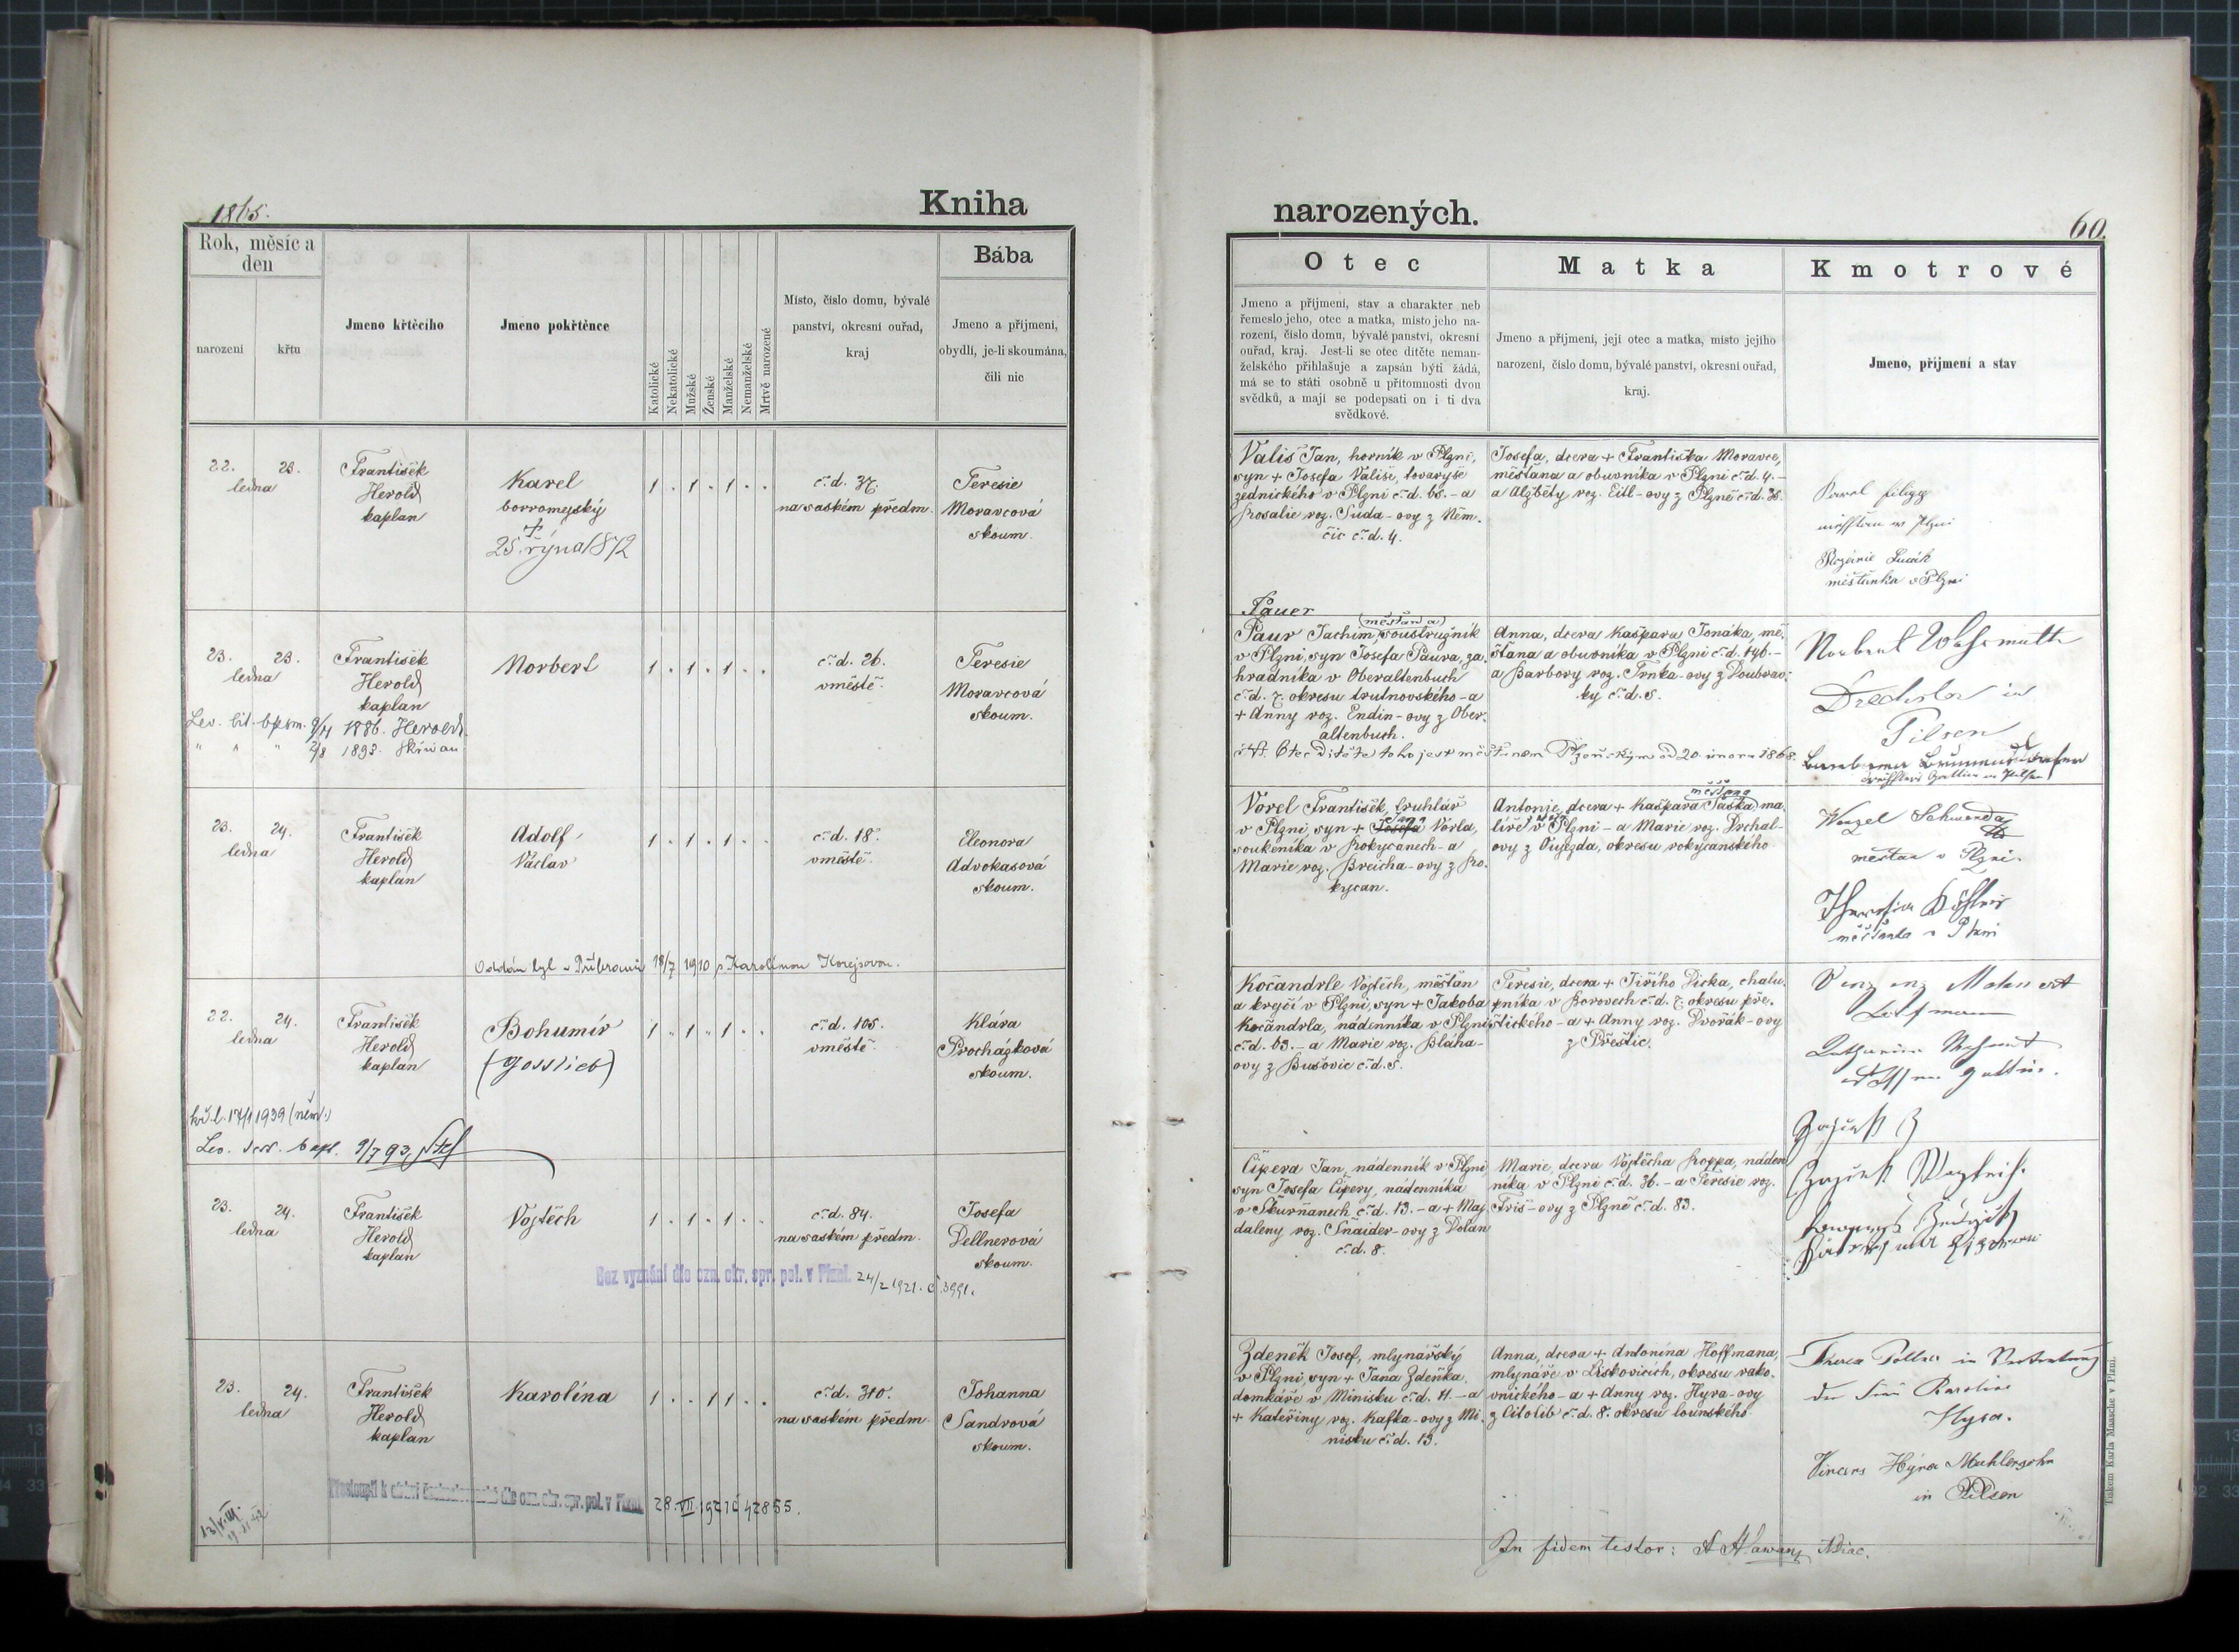 1865.
Kniha
narozených.
60.
Rok, měsíc a
den
narození
křtu
Jmeno křtěcího
Jmeno pokřtěnce
Katolické
Nekatolické
Mužské
Ženské
Manželské
Nemanželské
Mrtvě narozené
Místo, číslo domu, bývalé
panství, okresní ouřad,
kraj
Bába
Jmeno a příjmení,
obydlí, je-li skoumána,
čili nic
Otec
Jmeno a příjmení, stav a charakter neb
řemeslo jeho, otec a matka, místo jeho na-
rození, číslo domu, bývalé panství, okresní
ouřad, kraj. Jest-li se otec dítěte neman-
želského přihlašuje a zapsán býti žádá,
má se to státi osobně u přítomnosti dvou
svědků, a mají se podepsati on i ti dva
svědkové.
Matka
Jmeno a příjmení, její otec a matka, místo jejího
narození, číslo domu, bývalé panství, okresní ouřad,
kraj.
Kmotrové
Jmeno, příjmení a stav
22. 23.
ledna
František
Herold
kaplan
Karel
borromejský
+
25. října 1872
1 . 1 . 1 . .
č. d. 37.
na saském předm.
Teresie
Moravcová
skoum.
Vališ Jan, horník v Plzni,
syn + Josefa Vališe, tovaryše
zednického v Plzni č. d. 65. - a
Rosalie roz. Suda-ovy z Něm-
čic č. d. 4.
Josefa, dcera + Františka Moravce,
měšťana a obuvníka v Plzni č. d. 4. -
a Alžběty, roz. Eitl-ovy z Plzně č. d. 38.
Karel
w Plzni
měšťanka v Plzni
23. 23.
ledna
František
Herold
kaplan
Norbert
1 . 1 . 1 . .
č. d. 26.
v městě.
Teresie
Moravcová
skoum.
1886. Herold
1893.
Pauer
Paur Jachim, (měšťan a) soustružník
v Plzni, syn Josefa Paura, za-
hradníka v Oberaltenbuch
č. d. 7. okresu trutnovského - a
+ Anny roz. Endin-ovy z Ober-
altenbuch.
Otec dítěte toho jest měšťanem Plzeňským od 20 února 1868.
Anna, dcera Kašpara Jonáka, mě-
šťana a obuvníka v Plzni č. d. 146. -
a Barbory roz. Trnka-ovy z Doubrav-
ky č. d. 5.
Norbert
Drechsler in
Pilsen
23. 24.
ledna
František
Herold
kaplan
Adolf
Václav
1 . 1 . 1 . .
č. d. 18.
v městě.
Eleonora
Advokasová
skoum.
Oddán byl v Příbrami 18/7 1910 s Karolinou Korejsovou.
Vorel František, truhlář
v Plzni, syn + Josefa Jana Vorla,
soukeníka v Rokycanech - a
Marie roz. Breicha-ovy z Ro-
kycan.
Antonie, dcera + Kašpara Taška, měšťana ma-
líře v Plzni - a Marie roz. Drchal-
ovy z Oujezda, okresu rokycanského
Wenzel Schwenda
měšťan v Plzni.
Theresia
měšťanka v Plzni
22. 24.
ledna
František
Herold
kaplan
Bohumír
(Gottlieb)
1 . 1 . 1 . .
č. d. 105.
v městě.
Klára
Procházková
skoum.
kř. l. 17/1 1939 (něm.)
9/7 93.
Kočandrle Vojtěch, měšťan
a krejčí v Plzni, syn + Jakoba
Kočandrla, nádenníka v Plzni
č. d. 63. - a Marie roz. Bláha-
ovy z Bušovic č. d. 5.
Teresie, dcera + Jiřího Picka, chalu-
pníka v Borovech č. d. 7. okresu pře-
štického - a + Anny roz. Dvořák-ovy
z Přeštic.
23. 24.
ledna
František
Herold
kaplan
Vojtěch
1 . 1 . 1 . .
č. d. 84.
na saském předm.
Josefa
Dellnerová
skoum.
Bez vyznání dle ozn. okr. spr. pol. v Plzni. 24/2 1921. č. 3991.
Čipera Jan, nádenník v Plzni
syn Josefa Čipery, nádenníka
v Skurňanech č. d. 13. - a + Mag-
daleny roz. Šnaider-ovy z Dolan
č. d. 8.
Marie, dcera Vojtěcha Roppa, náden-
níka v Plzni č. d. 36. - a Teresie roz.
Friš-ovy z Plzně č. d. 83.
23. 24.
ledna
František
Herold
kaplan
Karolína
1 . . 1 1 . .
č. d. 310.
na saském předm.
Johanna
Sandrová
skoum.
Přestoupil k církvi československé dle ozn. okr. spr. pol. v Plzni 28. VII. 1921 č. 42855.
Zdeněk Josef, mlynářský
v Plzni, syn + Jana Zdeňka,
domkáře v Minisku č. d. 11. - a
+ Kateřiny roz. Kafka-ovy z Mi-
nisku č. d. 13.
Anna, dcera + Antonína Hoffmana,
mlynáře v Liskovicích, okresu rako-
vnického - a + Anny roz. Hyra-ovy
z Citolib č. d. 8. okresu lounského
in Vertretung
Karoline
Hyra.
Hyra
in Pilsen
In fidem testor:
Tiskem Karla Maasche v Plzni.